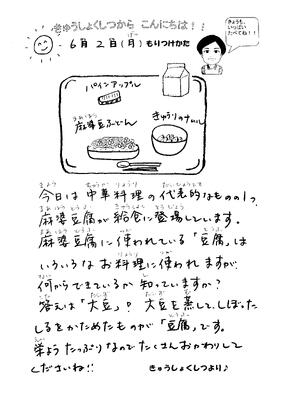 きゅうしょくしつから こんにちは!!
6月 2日(月) もりつけかた
きょうも、
いっぱい
たべてね!!
パインアップル
麻婆豆ふどん
きゅうりのナムル
今日は中華料理の代表的なものの1つ、
麻婆豆腐が給食に登場しています。
麻婆豆腐に使われている「豆腐」は
いろいろなお料理に使われますが、
何からできているか知っていますか?
答えは「大豆」。大豆を蒸して、しぼった
しるをかためたものが「豆腐」です。
栄ようたっぷりなのでたくさんおかわりして
くださいね!!
きゅうしょくしつより♪